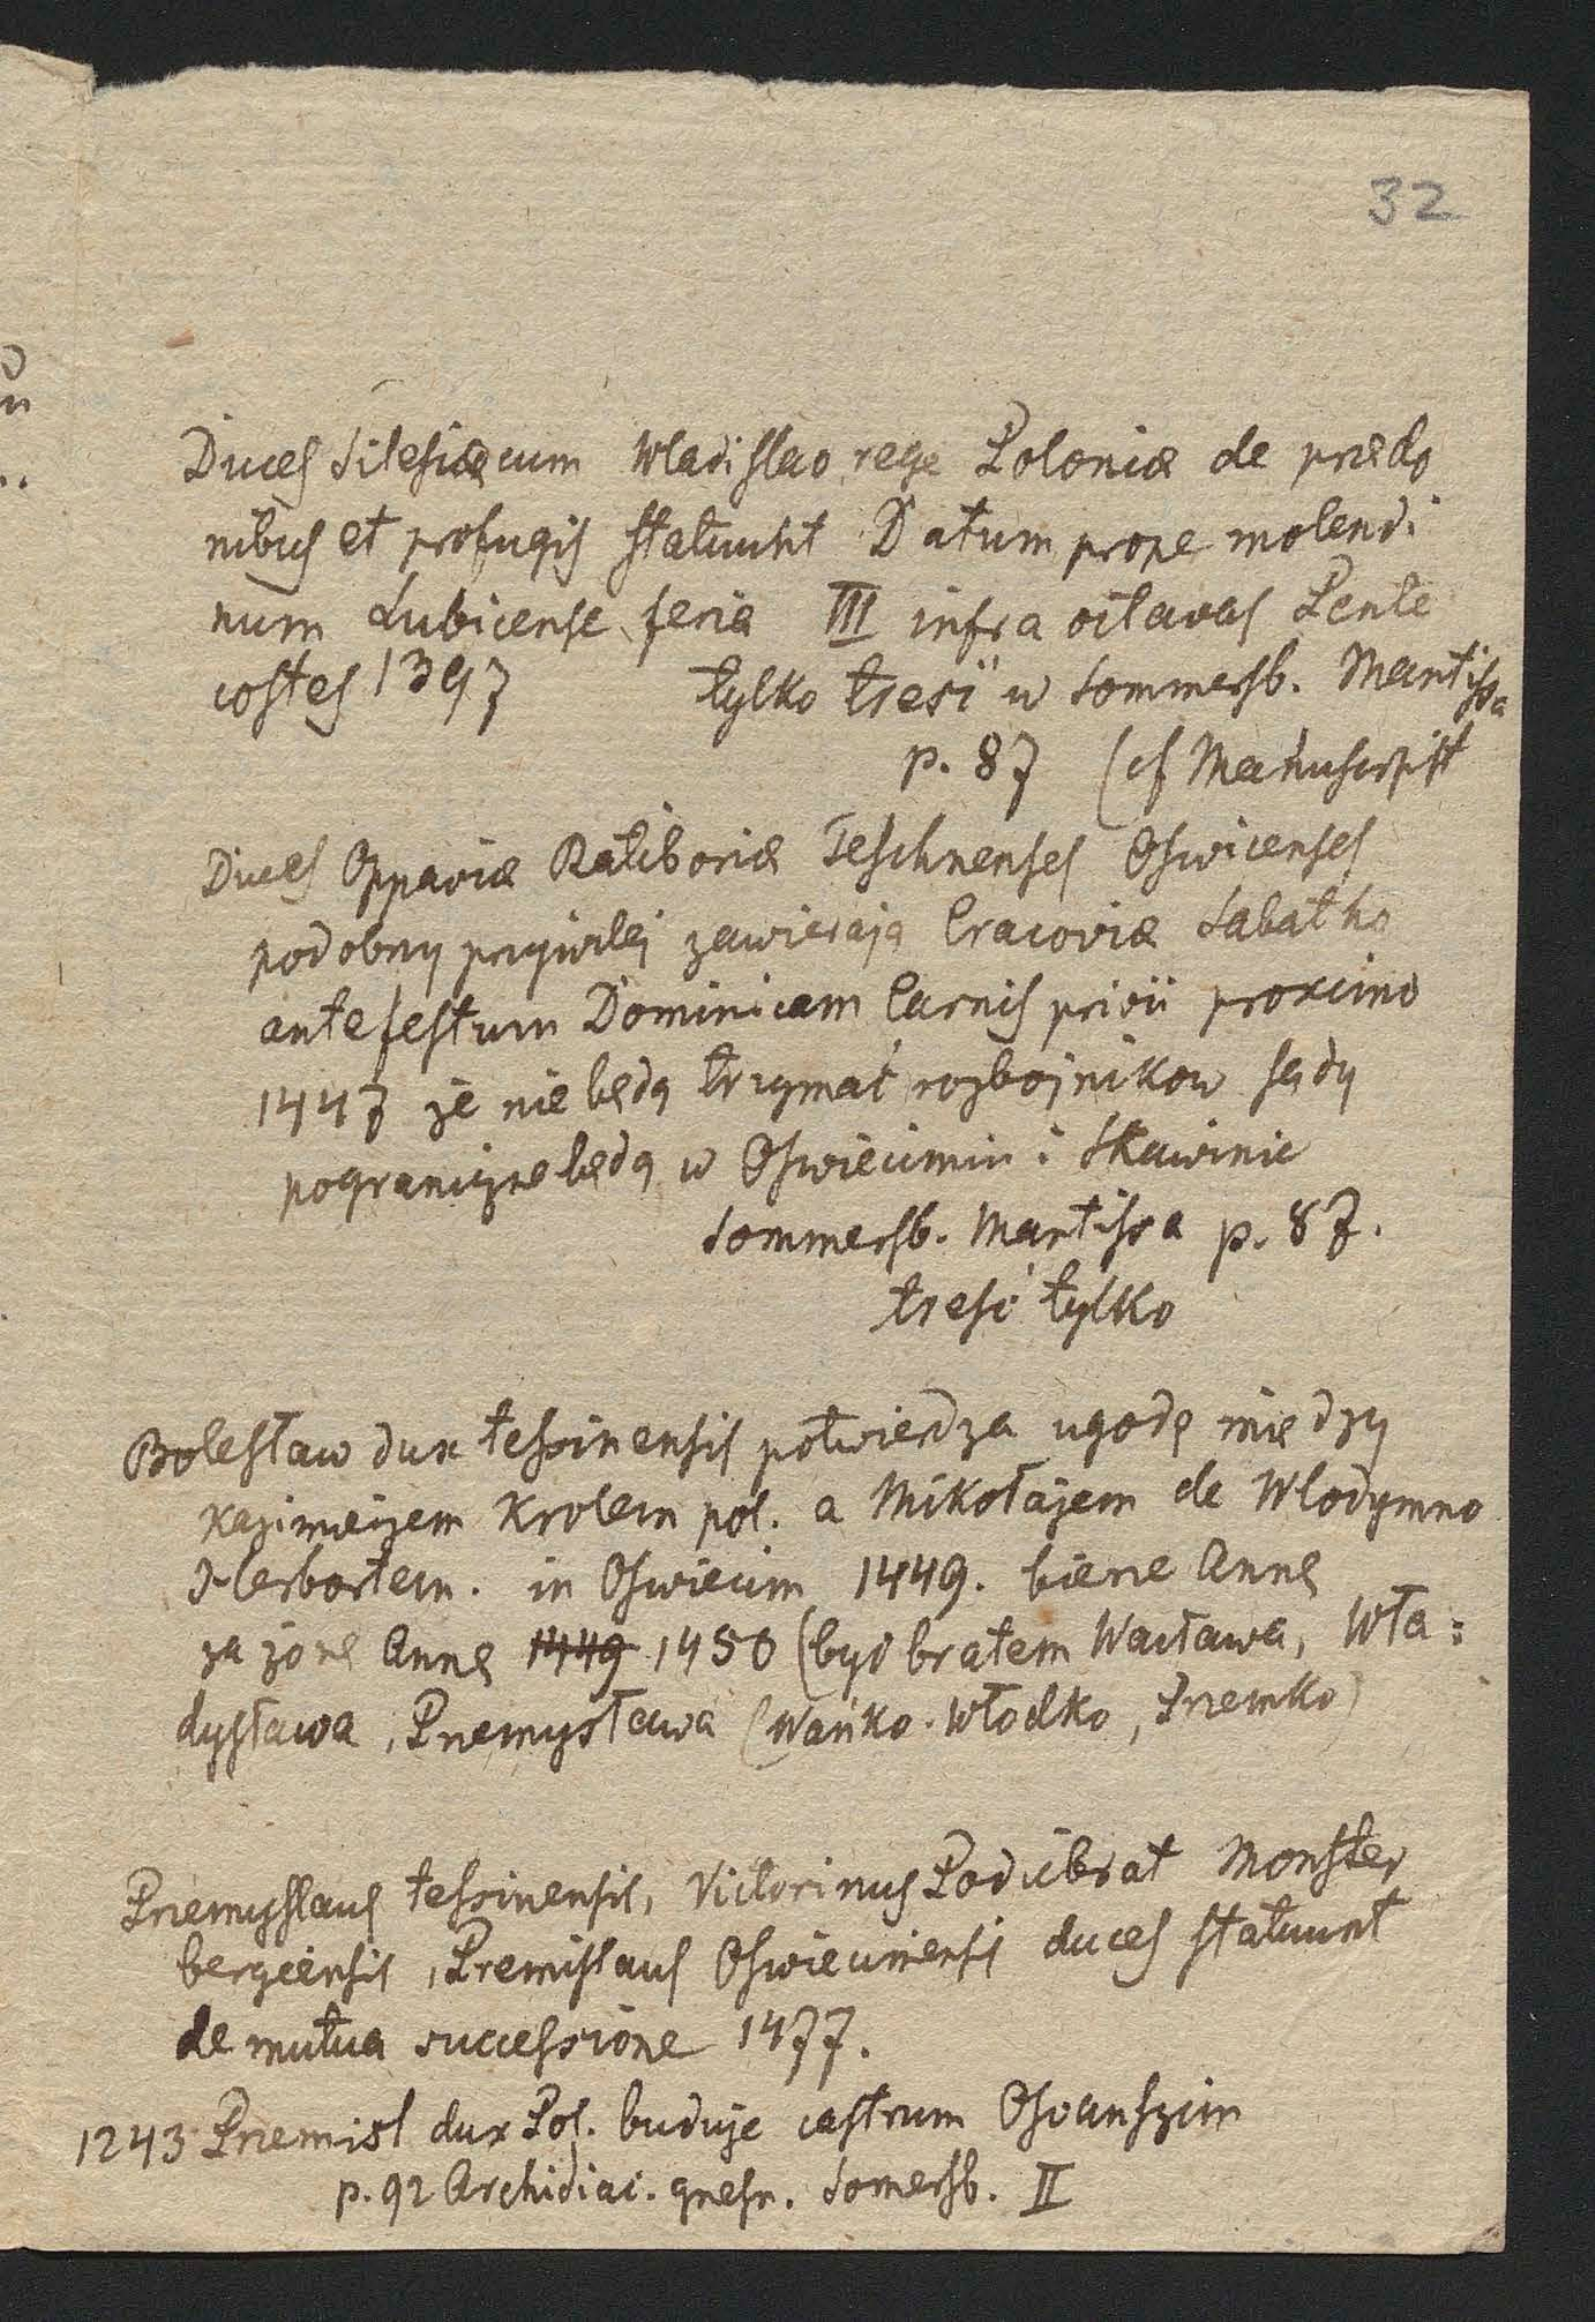 32
Duces Silesiæ cum Wladislao rege Poloniæ de prædo
nibus et profugis statuunt Datum prope molendi
num Lubicense feria III infra octavas Pente
costes 1397 tylko treść w Sommersb. Mantissa
p. 87 (cf Manuscript
Duces Oppaviæ Ratiboriæ Teschnenses Oswicenses
podobny przywilej zawierają Cracoviæ Sabatho
ante festum Dominicam Carnis privii proximo
1447 że nie będą trzymać rozbojnikow sądy
pograniczne będą w Oswiecimiu i Skawinie
Sommersb. Mantissa p. 87.
treść tylko
Bolesław dux tessinensis potwierdza ugodę między
Kazimierzem Krolem pol. a Mikołajem de Wlodymno
Herbortem. in Oswiecim 1449. bierze Annę
za żonę Annę 1449 1450 (był bratem Wacława, Wła=
dysława, Przemysława (Wańko. Włodko, Przemko)
Przemyslaus tessinensis, Victorinus Podiebrat Monster
bergensis, Premislaus Oswiecimensis duces statuunt
de mutua successione 1477.
1243 Przemisl dux Pol. buduje castrum Osvanszim
p. 92 Archidiac. gnesn. Somersb. II